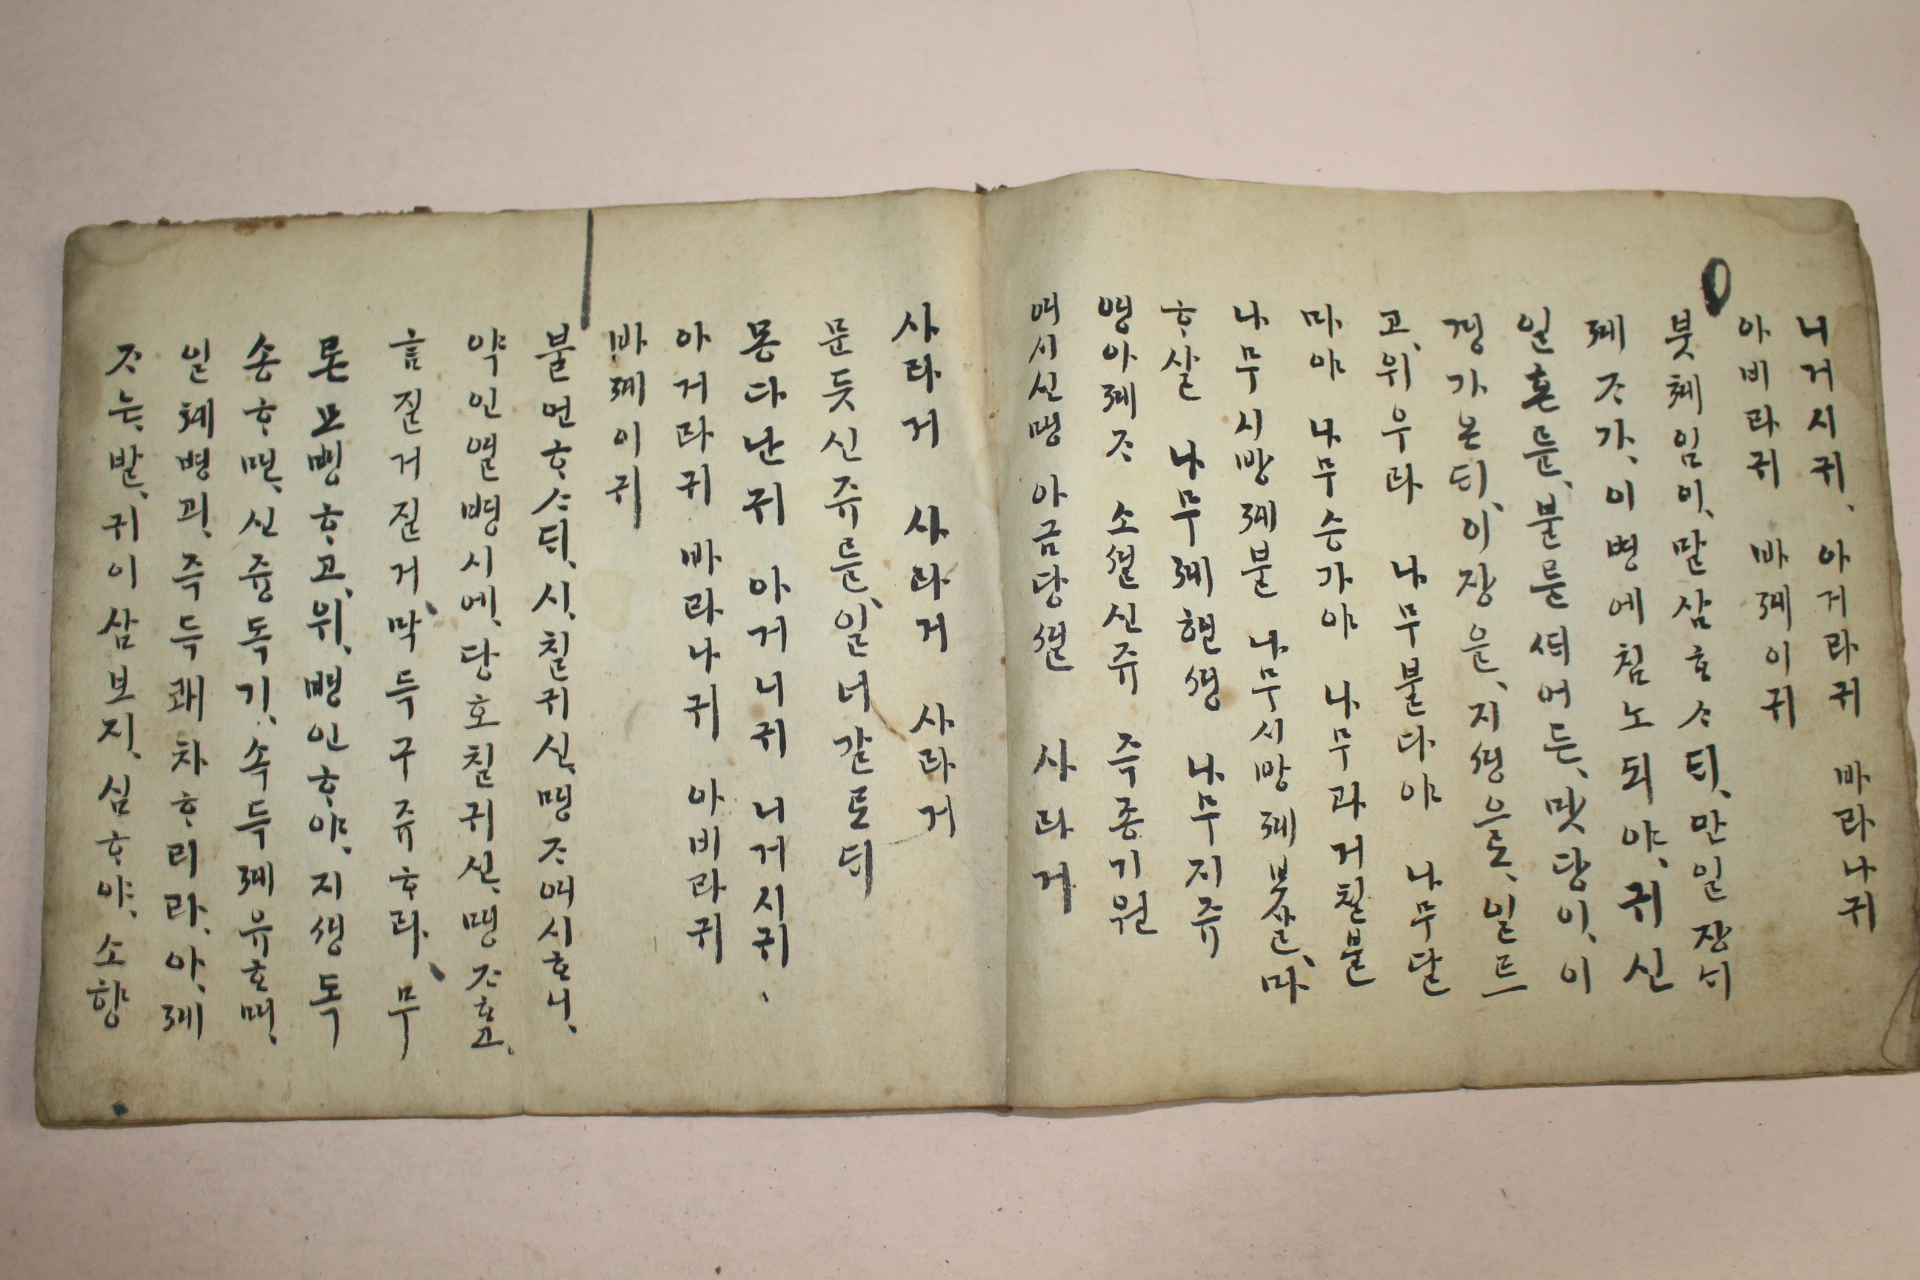 니거시귀、아거라귀 바라나귀
아비라귀 바례이귀
붓쳬임이、말삼ᄒᆞᄉᆞ되、만일 장ᄉᆡ
졔ᄌᆞ가、이 병에 침노되야、귀신
일흔를、불를 ᄯᆡ어든、맛당이、이
경 가온ᄃᆡ、이 장을、지셩으로、일트
고、위우라 나무불다야 나무달
마야 나무승가야 나무과거칠불
나무시방졔불 나무시방졔붓살、마
ᄒᆞ살 나무졔현셩 나무지쥬
앵아졔ᄌᆞ 소셜신쥬 즉종기원
여시신맹 아금당셜 사라거
사라거 사라거 사라거
문듯 신쥬를、일너 갈로ᄃᆡ
몽다난귀 아거니귀 니거시귀、
아거라귀 바라나귀 아비라귀
바례이귀
불언ᄒᆞᄉᆞ되、시、칠귀신、맹ᄌᆞ여시ᄒᆞ니、
약인열병시에、당호칠귀신、맹ᄌᆞᄒᆞ고、
즐거질거、막득구쥬ᄒᆞ라、무
론모병ᄒᆞ고、위、병인ᄒᆞ야、지셩독
송ᄒᆞ며、신즁독기、속득졔유ᄒᆞ며、
일쳬병괴、즉득쾌차ᄒᆞ리라、아、졔
ᄌᆞ는、발、귀이삼보지、심ᄒᆞ야、소향